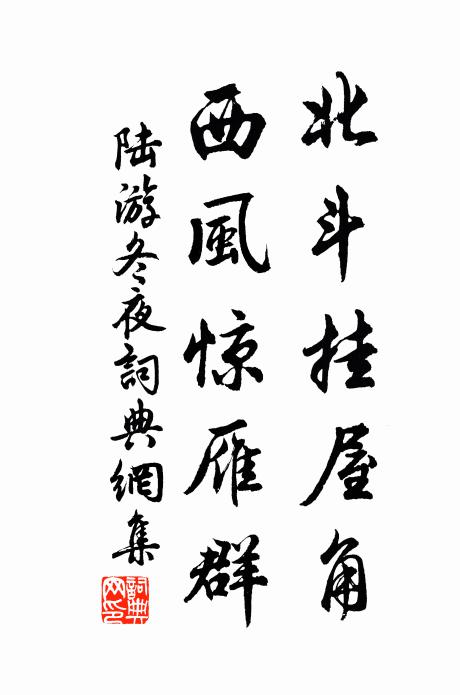 北斗挂屋角
西風惊雁群
陆游冬夜詞典網集
詞典网印